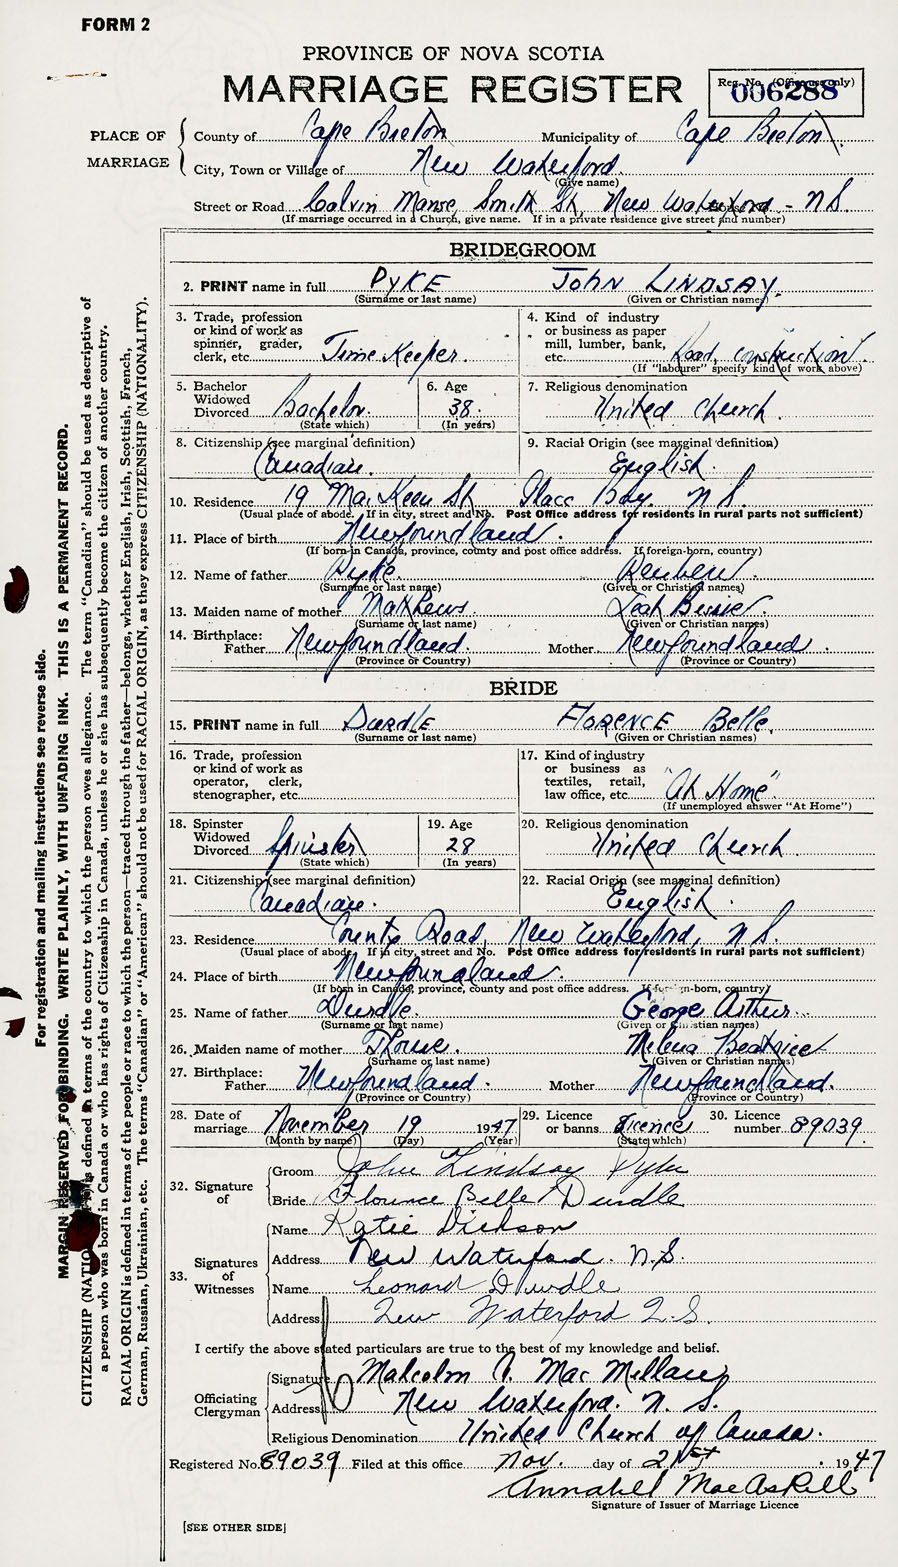 FORM 2
PROVINCE OF NOVA SCOTIA
MARRIAGE REGISTER
Reg. No. (Office use only)
006288
PLACE OF MARRIAGE
County of Cape Breton Municipality of Cape Breton
City, Town or Village of New Waterford
(Give name)
Street or Road Calvin Manse, Smith St, New Waterford - N.S.
(If marriage occurred in a Church, give name. If in a private residence give street and number)
BRIDEGROOM
2. PRINT name in full PYKE JOHN LINDSAY.
(Surname or last name) (Given or Christian names)
3. Trade, profession or kind of work as spinner, grader, clerk, etc. Time Keeper.
4. Kind of industry or business as paper mill, lumber, bank, etc. Road construction
(If "labourer" specify kind of work above)
5. Bachelor Widowed Divorced Bachelor.
(State which)
6. Age 38.
(In years)
7. Religious denomination United Church.
8. Citizenship (see marginal definition) Canadian.
9. Racial Origin (see marginal definition) English.
10. Residence 19 MacKeen St Glace Bay. N.S.
(Usual place of abode. If in city, street and No. Post Office address for residents in rural parts not sufficient)
11. Place of birth Newfoundland.
(If born in Canada, province, county and post office address. If foreign-born, country)
12. Name of father Pyke. Reuben.
(Surname or last name) (Given or Christian names)
13. Maiden name of mother Mathews. Leah
(Surname or last name) (Given or Christian names)
14. Birthplace: Father Newfoundland. Mother Newfoundland.
(Province or Country) (Province or Country)
BRIDE
15. PRINT name in full DURDLE FLORENCE Belle.
(Surname or last name) (Given or Christian names)
16. Trade, profession or kind of work as operator, clerk, stenographer, etc.
17. Kind of industry or business as textiles, retail, law office, etc. "At Home"
(If unemployed answer "At Home")
18. Spinster Widowed Divorced Spinster
(State which)
19. Age 28
(In years)
20. Religious denomination United Church
21. Citizenship (see marginal definition) Canadian.
22. Racial Origin (see marginal definition) English.
23. Residence County Road, New Waterford, N.S.
(Usual place of abode. If in city, street and No. Post Office address for residents in rural parts not sufficient)
24. Place of birth Newfoundland.
(If born in Canada, province, county and post office address. If foreign-born, country)
25. Name of father Durdle George Arthur.
(Surname or last name) (Given or Christian names)
26. Maiden name of mother Beatrice
(Surname or last name) (Given or Christian names)
27. Birthplace: Father Newfoundland. Mother Newfoundland.
(Province or Country) (Province or Country)
28. Date of marriage November 19 1947
(Month by name) (Day) (Year)
29. Licence or banns Licence
(State which)
30. Licence number 89039
32. Signature of
Groom John Lindsay Pyke
Bride Florence Belle Durdle
33. Signatures of Witnesses
Name Katie Dickson
Address New Waterford. N.S.
Name Leonard Durdle
Address New Waterford N.S.
I certify the above stated particulars are true to the best of my knowledge and belief.
Officiating Clergyman
Signature Malcolm A. MacMillan
Address New Waterford. N.S.
Religious Denomination United Church of Canada.
Registered No. 89039 Filed at this office Nov. day of 21st 1947
Annabel MacAskill
Signature of Issuer of Marriage Licence
[SEE OTHER SIDE]
For registration and mailing instructions see reverse side.
MARGIN RESERVED FOR BINDING. WRITE PLAINLY, WITH UNFADING INK. THIS IS A PERMANENT RECORD.
CITIZENSHIP (NATIONALITY) is defined in terms of the country to which the person owes allegiance. The term "Canadian" should be used as descriptive of
a person who was born in Canada or who has rights of Citizenship in Canada, unless he or she has subsequently become the citizen of another country.
RACIAL ORIGIN is defined in terms of the people or race to which the person—traced through the father—belongs, whether English, Irish, Scottish, French,
German, Russian, Ukrainian, etc. The terms "Canadian" or "American" should not be used for RACIAL ORIGIN, as they express CITIZENSHIP (NATIONALITY).